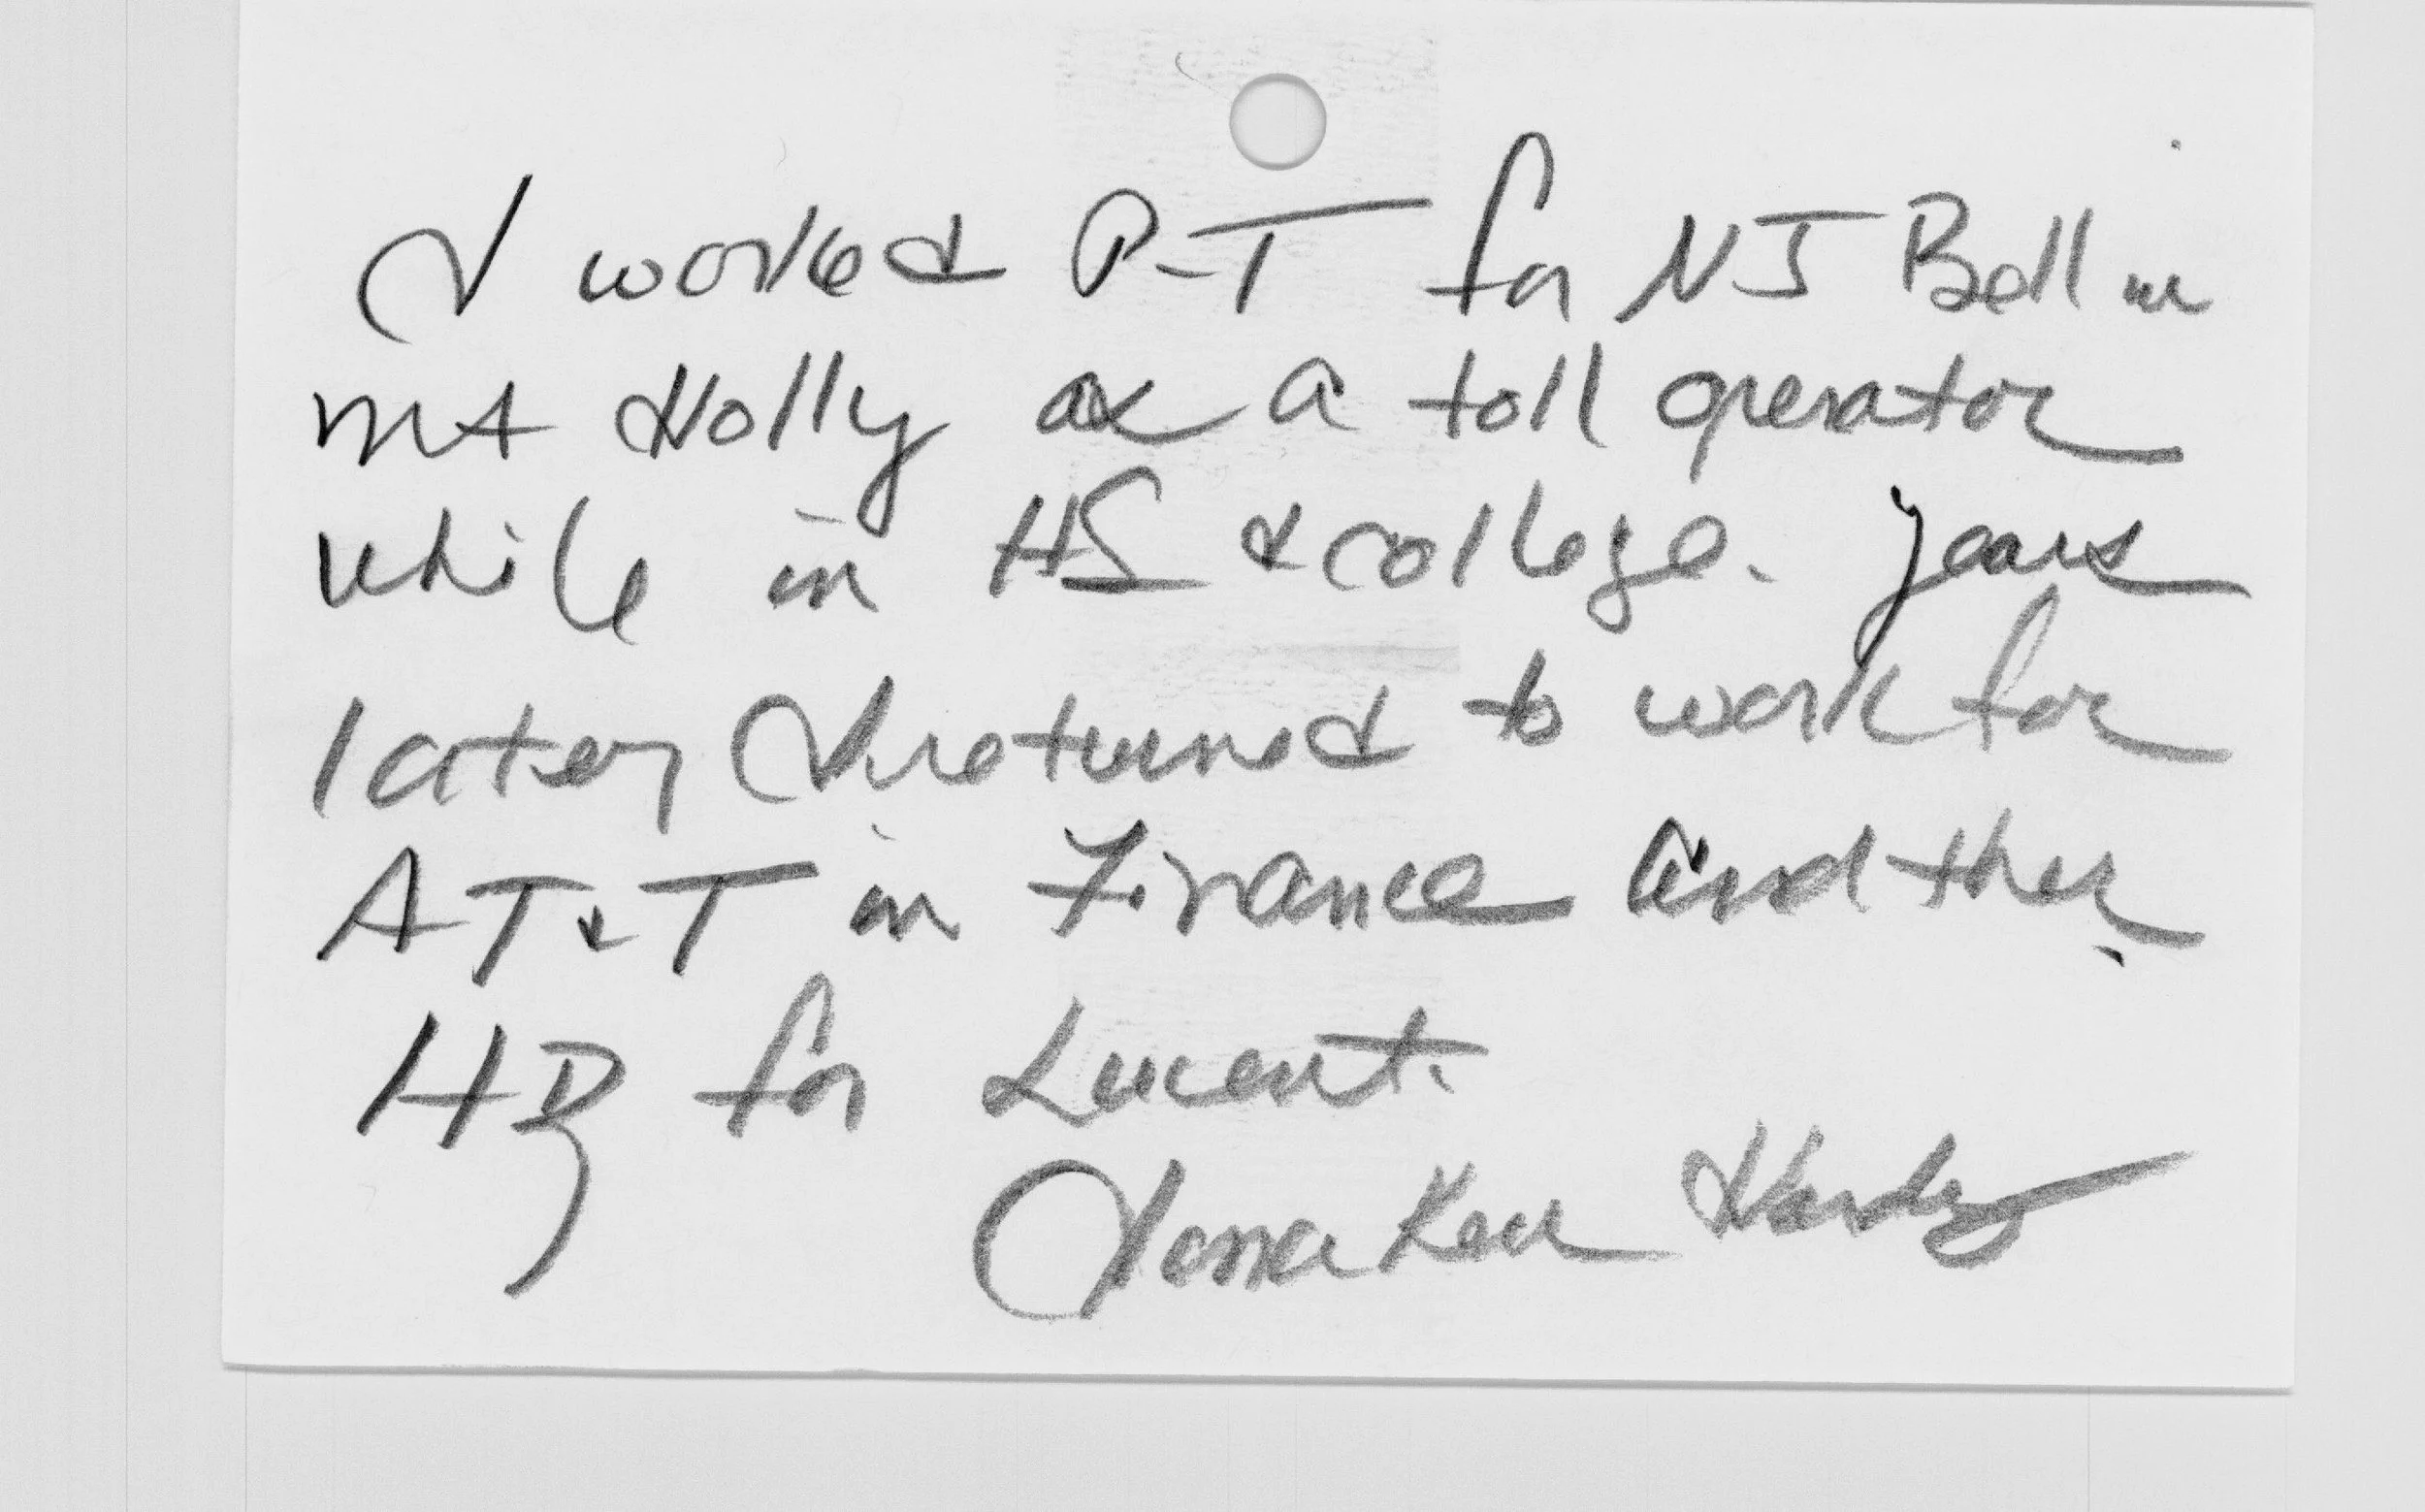 I worked P-T for NJ Bell in
Mt Holly as a toll operator
while in HS & college. Years
later I returned to work for
AT&T in Finance and then
HR for Lucent.